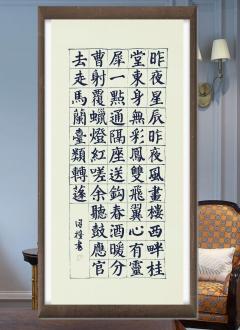 昨夜星辰昨夜風畫樓西畔桂
堂東身無彩鳳雙飛翼心有靈
犀一點通隔座送鈎春酒暖分
曹射覆蠟燈紅嗟余聽鼓應官
去走馬蘭臺類轉蓬
書